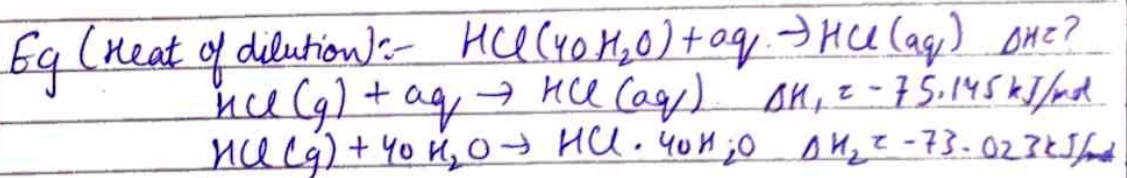 Eg (Heat of dilution):- HCl(40H₂O)+aq. → HCl(aq) ΔH=?
HCl(g) + aq → HCl(aq) ΔH₁ = -75.145 kJ/mol
HCl(g) + 40H₂O → HCl.40H₂O ΔH₂ = -73.023 kJ/mol